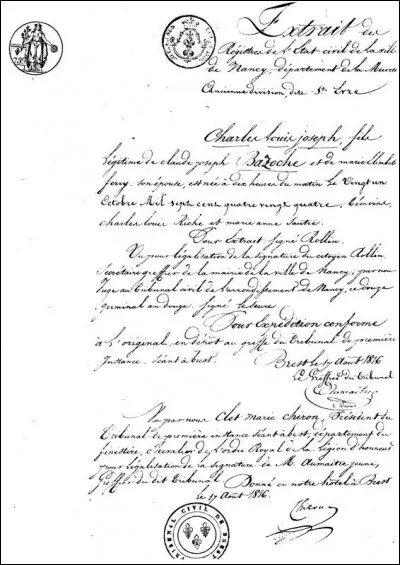 Extrait des
Régistres de l'Etat civil de la ville
de Nancy, département de la Meurte
Ancienne division, dite St
Charles Louis joseph, fils
légitime de claude joseph Bazoche et de marie
ferry son épouse, est née à dix heures du matin Le Vingt un
Octobre Mil sept cens quatre vingt quatre, témoins,
charles Louis Riche et marie anne
Pour Extrait signé Rollin.
Vu pour légalisation de la signature du citoyen Rollin
Secrétaire greffier de la mairie de la ville de Nancy, par nous
Juge au tribunal civil de l'arrondissement de Nancy, ce douze
germinal an douze. signé
Pour Expédition conforme
à L'original, en dépot au greffe du Tribunal de première
Instance, séant à brest. Brest le 17 Aout 1816.
Le Greffier du tribunal
Vu par nous Clet marie Chiron, Président du
Tribunal de première instance séant à brest, département du
finistère, chevalier de l'ordre Royal de la Légion d'honneur
pour légalisation de la signature de M. Aumaitre jeune,
Greffier du dit tribunal Donné en notre hôtel à Brest
le 17 Aout 1816.
Chiron
TRIBUNAL CIVIL DE BREST